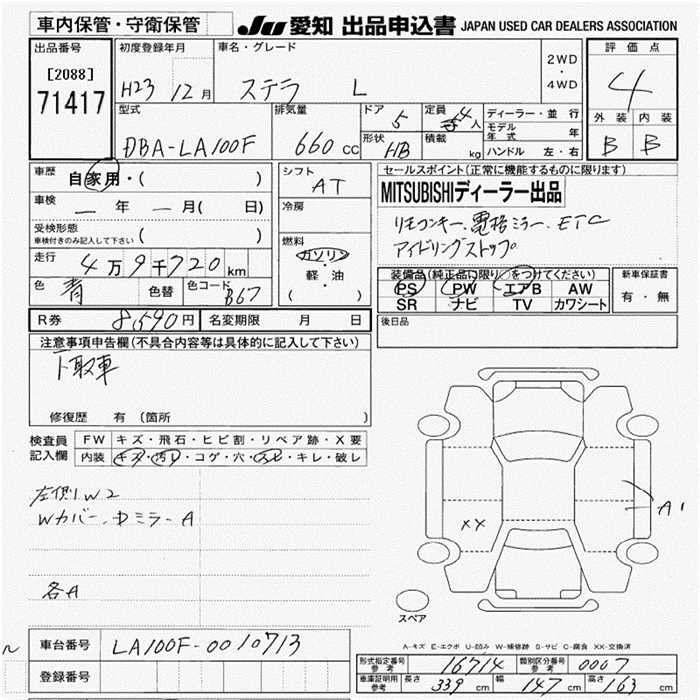 車内保管・守衛保管 JU 愛知 出品申込書 JAPAN USED CAR DEALERS ASSOCIATION
出品番号 初度登録年月 車名・グレード 2WD ・ 4WD 評価点
[2088] H23 12月 ステラ L 4
71417
型式 排気量 ドア 5 定員 4人 ディーラー・並行 外装 内装
DBA-LA100F 660cc 形状 HB 積載 kg モデル年式 年 B B
ハンドル 左・右
車歴 自家用・( ) シフト AT セールスポイント(正常に機能するものに限ります)
MITSUBISHIディーラー出品
車検 ― 年 ― 月( 日) 冷房
リモコンキー、電格ミラー、ETC
受検形態 ( )
車検付きのみ記入して下さい
アイドリングストップ
走行 4万9千720km 燃料 ガソリン・軽・油 ( )
装備品(純正品に限り○をつけてください) 新車保証書
色 青 色替 色コード B67 PS PW エアB AW 有・無
SR ナビ TV カワシート
R券 8,590円 名変期限 月 日 後日品
注意事項申告欄(不具合内容等は具体的に記入して下さい)
下取車
修復歴 有 (箇所 )
検査員記入欄 FW キズ・飛石・ヒビ割・リペア跡・X要
内装 キズ・汚レ・コゲ・穴・スレ・キレ・破レ
左側W2
Wカバー、ドミラーA
XX A1
各A
スペア
A-キズ E-エクボ U-凹み W-補修跡 S-サビ C-腐食 XX-交換済
車台番号 LA100F-0010713
形式指定番号 参考 16714 類別区分番号 参考 0007
登録番号
車庫証明用 参考 長さ 339cm 幅 147cm 高さ 163cm